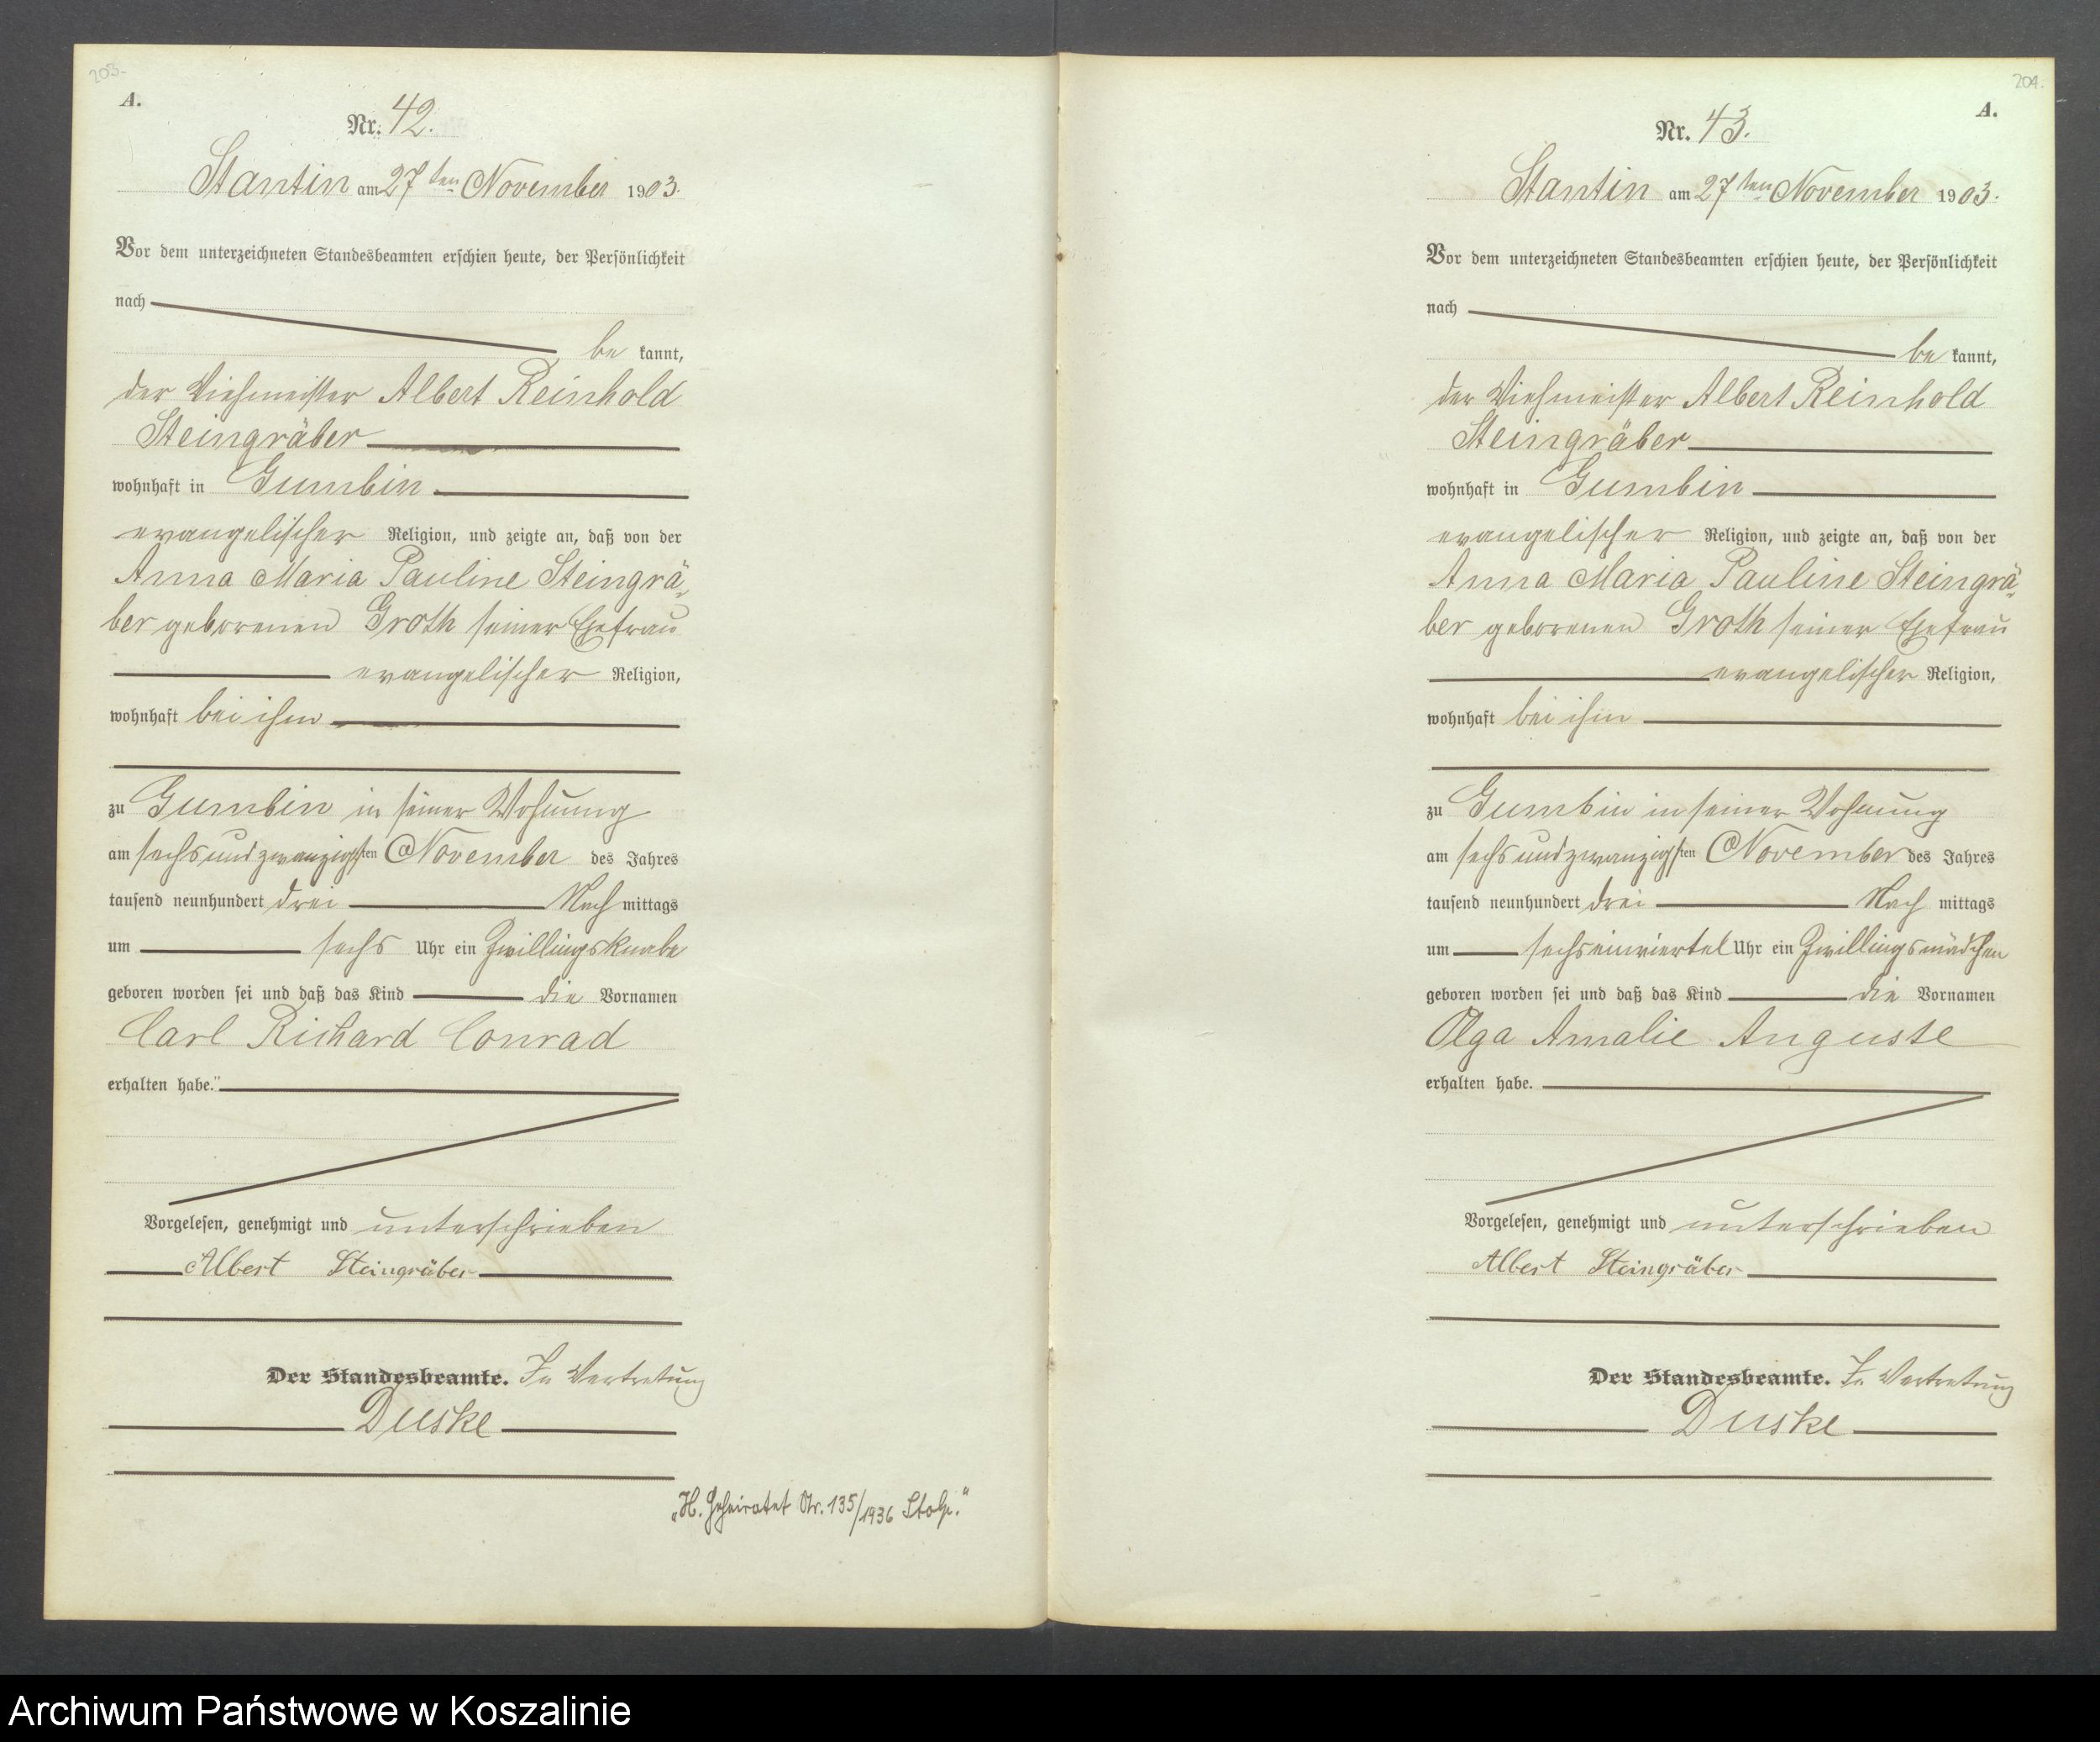 203.
A.
Nr. 42.
Stantin am 27ten November 1903.
Vor dem unterzeichneten Standesbeamten erschien heute, der Persönlichkeit
nach
be kannt,
der Viehmeister Albert Reinhold
Steingräber
wohnhaft in Gumbin
evangelischer Religion, und zeigte an, daß von der
Anna Maria Pauline Steingrä
ber geborenen Groth seiner Ehefrau
evangelischer Religion,
wohnhaft bei ihm
zu Gumbin in seiner Wohnung
am sechsundzwanzigsten November des Jahres
tausend neunhundert drei Nach mittags
um sechs Uhr ein Zwillingsknabe
geboren worden sei und daß das Kind die Vornamen
Carl Richard Conrad
erhalten habe."
Vorgelesen, genehmigt und unterschrieben
Albert Steingräber
Der Standesbeamte. In Vertretung
Duske
„H. Geheiratet Nr. 135/1936 Stolp."
204.
A.
Nr. 43.
Stantin am 27ten November 1903.
Vor dem unterzeichneten Standesbeamten erschien heute, der Persönlichkeit
nach
be kannt,
der Viehmeister Albert Reinhold
Steingräber
wohnhaft in Gumbin
evangelischer Religion, und zeigte an, daß von der
Anna Maria Pauline Steingrä
ber geborenen Groth seiner Ehefrau
evangelischer Religion,
wohnhaft bei ihm
zu Gumbin in seiner Wohnung
am sechsundzwanzigsten November des Jahres
tausend neunhundert drei Nach mittags
um sechseinviertel Uhr ein Zwillingsmädchen
geboren worden sei und daß das Kind die Vornamen
Olga Amalie Auguste
erhalten habe.
Vorgelesen, genehmigt und unterschrieben
Albert Steingräber
Der Standesbeamte. In Vertretung
Duske
Archiwum Państwowe w Koszalinie